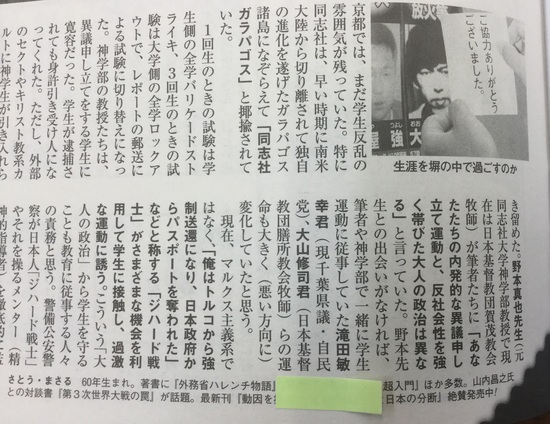 放火
ご協力ありがとう
ございました。
おお
大
つよし
強
屋
生涯を塀の中で過ごすのか
京都では、まだ学生反乱の
雰囲気が残っていた。特に
同志社は、早い時期に南米
大陸から切り離されて独自
の進化を遂げたガラパゴス
諸島になぞらえて「同志社
ガラパゴス」と揶揄されて
いた。
1回生のときの試験は学
生側の全学バリケードスト
ライキ、3回生のときの試
験は大学側の全学ロックア
ウトで、レポートの郵送に
よる試験に切り替えになっ
た。神学部の教授たちは、
異議申し立てをする学生に
寛容だった。学生が逮捕さ
れても身許引き受け人にな
ってくれた。ただし、外部
のセクトやキリスト教系カ
ルトに神学生が引き入れら
き留めた。野本真也先生(元
同志社大学神学部教授で現
在は日本基督教団賀茂教会
牧師)が筆者たちに「あな
たたちの内発的な異議申し
立て運動と、反社会性を強
く帯びた大人の政治は異な
る」と言っていた。野本先
生との出会いがなければ、
筆者や神学部で一緒に学生
運動に従事していた滝田敏
幸君(現千葉県議・自民
党)、大山修司君(日本基督
教団膳所教会牧師)らの運
命も大きく(悪い方向に)
変化していたと思う。
現在、マルクス主義系で
はなく、「俺はトルコから強
制送還になり、日本政府か
らパスポートを奪われた」
などと称する「ジハード戦
士」がさまざまな機会を利
用して学生に接触し、過激
な運動に誘う。こういう「大
人の政治」から学生を守る
ことも教育に従事する人々
の責務と思う。警備公安警
察が日本人「ジハード戦士」
やそれを操るメンター(精
神的指導者)を徹底的に
さとう・まさる 60年生まれ。著書に『外務省ハレンチ物語』 超入門』ほか多数。山内昌之氏
との対談書『第3次世界大戦の罠』が話題。最新刊『動因を 日本の分断』絶賛発売中!